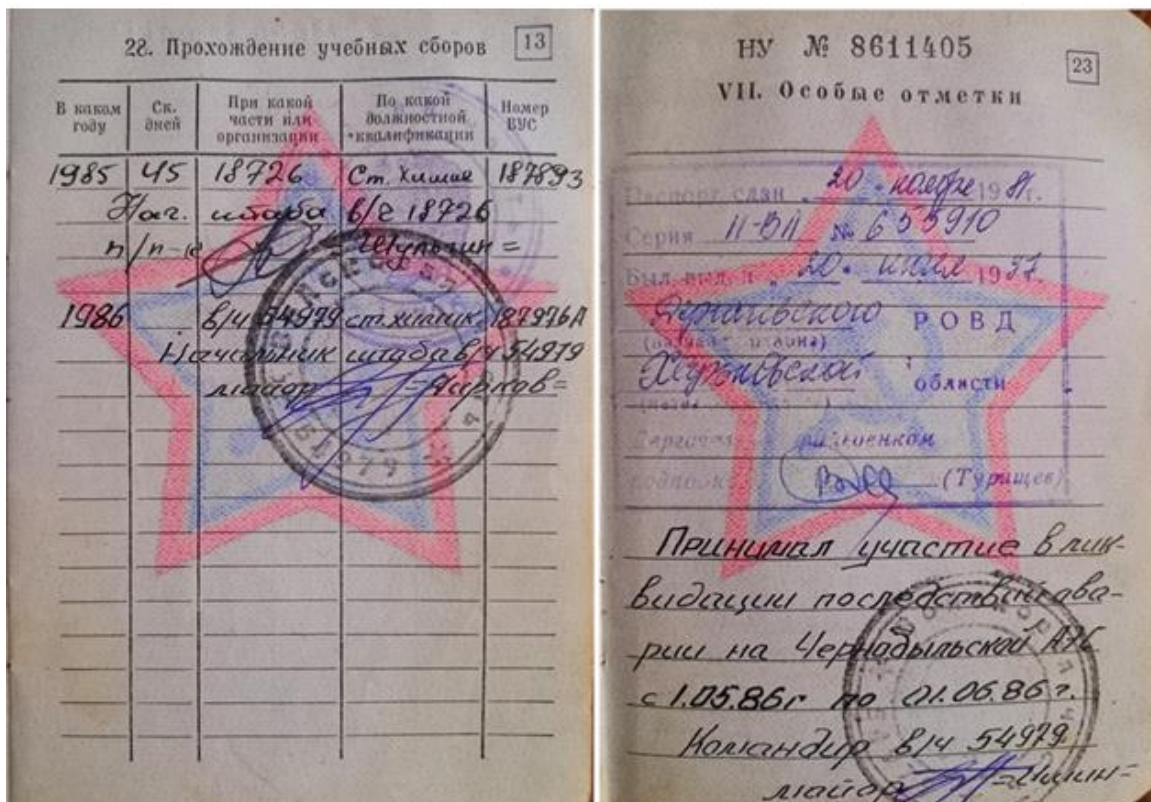 22. Прохождение учебных сборов
13
В каком году
Ск. дней
При какой части или организации
По какой должностной квалификации
Номер ВУС
1985 45 18726 Ст. химик 187893
Нач. штаба в/ч 18726
п/п-к
1986 в/ч 54979 ст. химик 187976А
Начальник штаба в/ч 54979
майор
НУ № 8611405
23
VII. Особые отметки
Паспорт сдан 20 ноября 1981г.
Серия II-ВЛ № 655910
Был выдан 20
РОВД
области
райвоенком
(Турищев)
Принимал участие в лик-
видации последствий ава-
рии на Чернобыльской АЭС
с 1.05.86г по 01.06.86г.
Командир в/ч 54979
майор